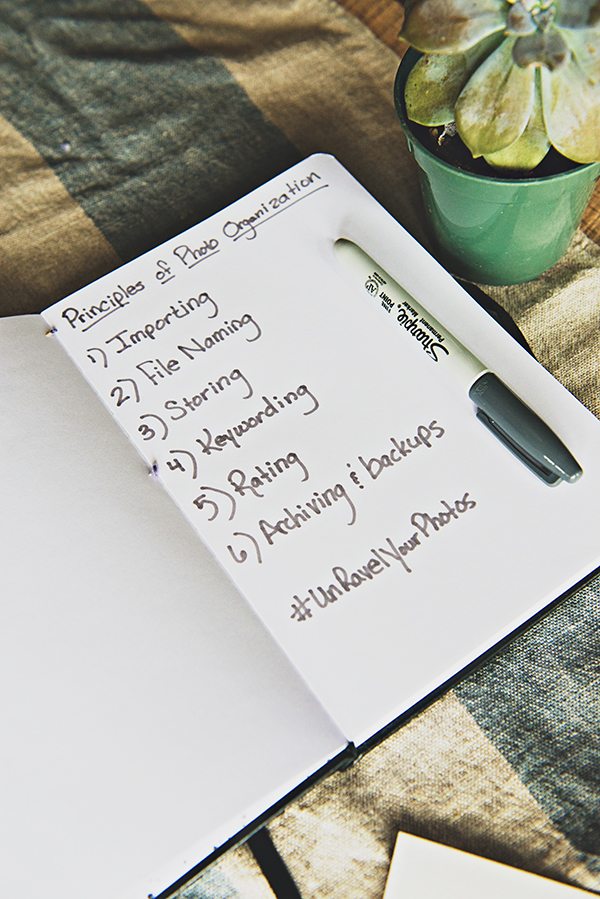 Principles of Photo Organization
1) Importing
2) File Naming
3) Storing
4) Keywording
5) Rating
6) Archiving & backups
#UnRavelYourPhotos
Sharpie
Permanent Marker
FINE
POINT
AP